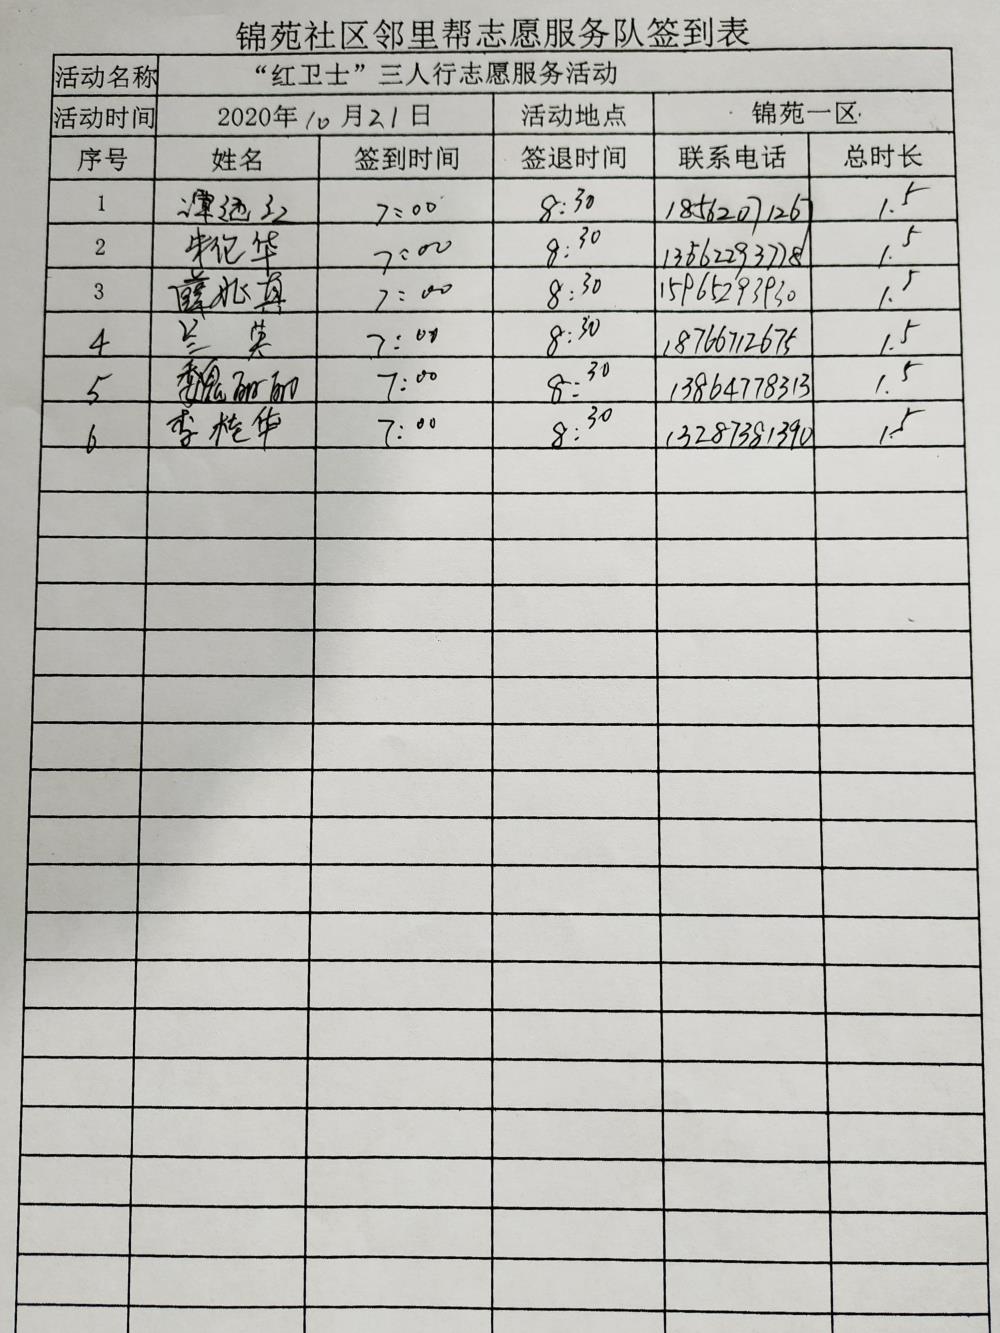 锦苑社区邻里帮志愿服务队签到表
活动名称 “红卫士”三人行志愿服务活动
活动时间 2020年10月21日 活动地点 锦苑一区
序号 姓名 签到时间 签退时间 联系电话 总时长
1 7:00 8:30 18562071267 1.5
2 朱伦华 7:00 8:30 13562293778 1.5
3 薛兆真 7:00 8:30 15965293930 1.5
4 兰英 7:00 8:30 18766712675 1.5
5 魏丽丽 7:00 8:30 13864778313 1.5
6 李桂华 7:00 8:30 13287381390 1.5